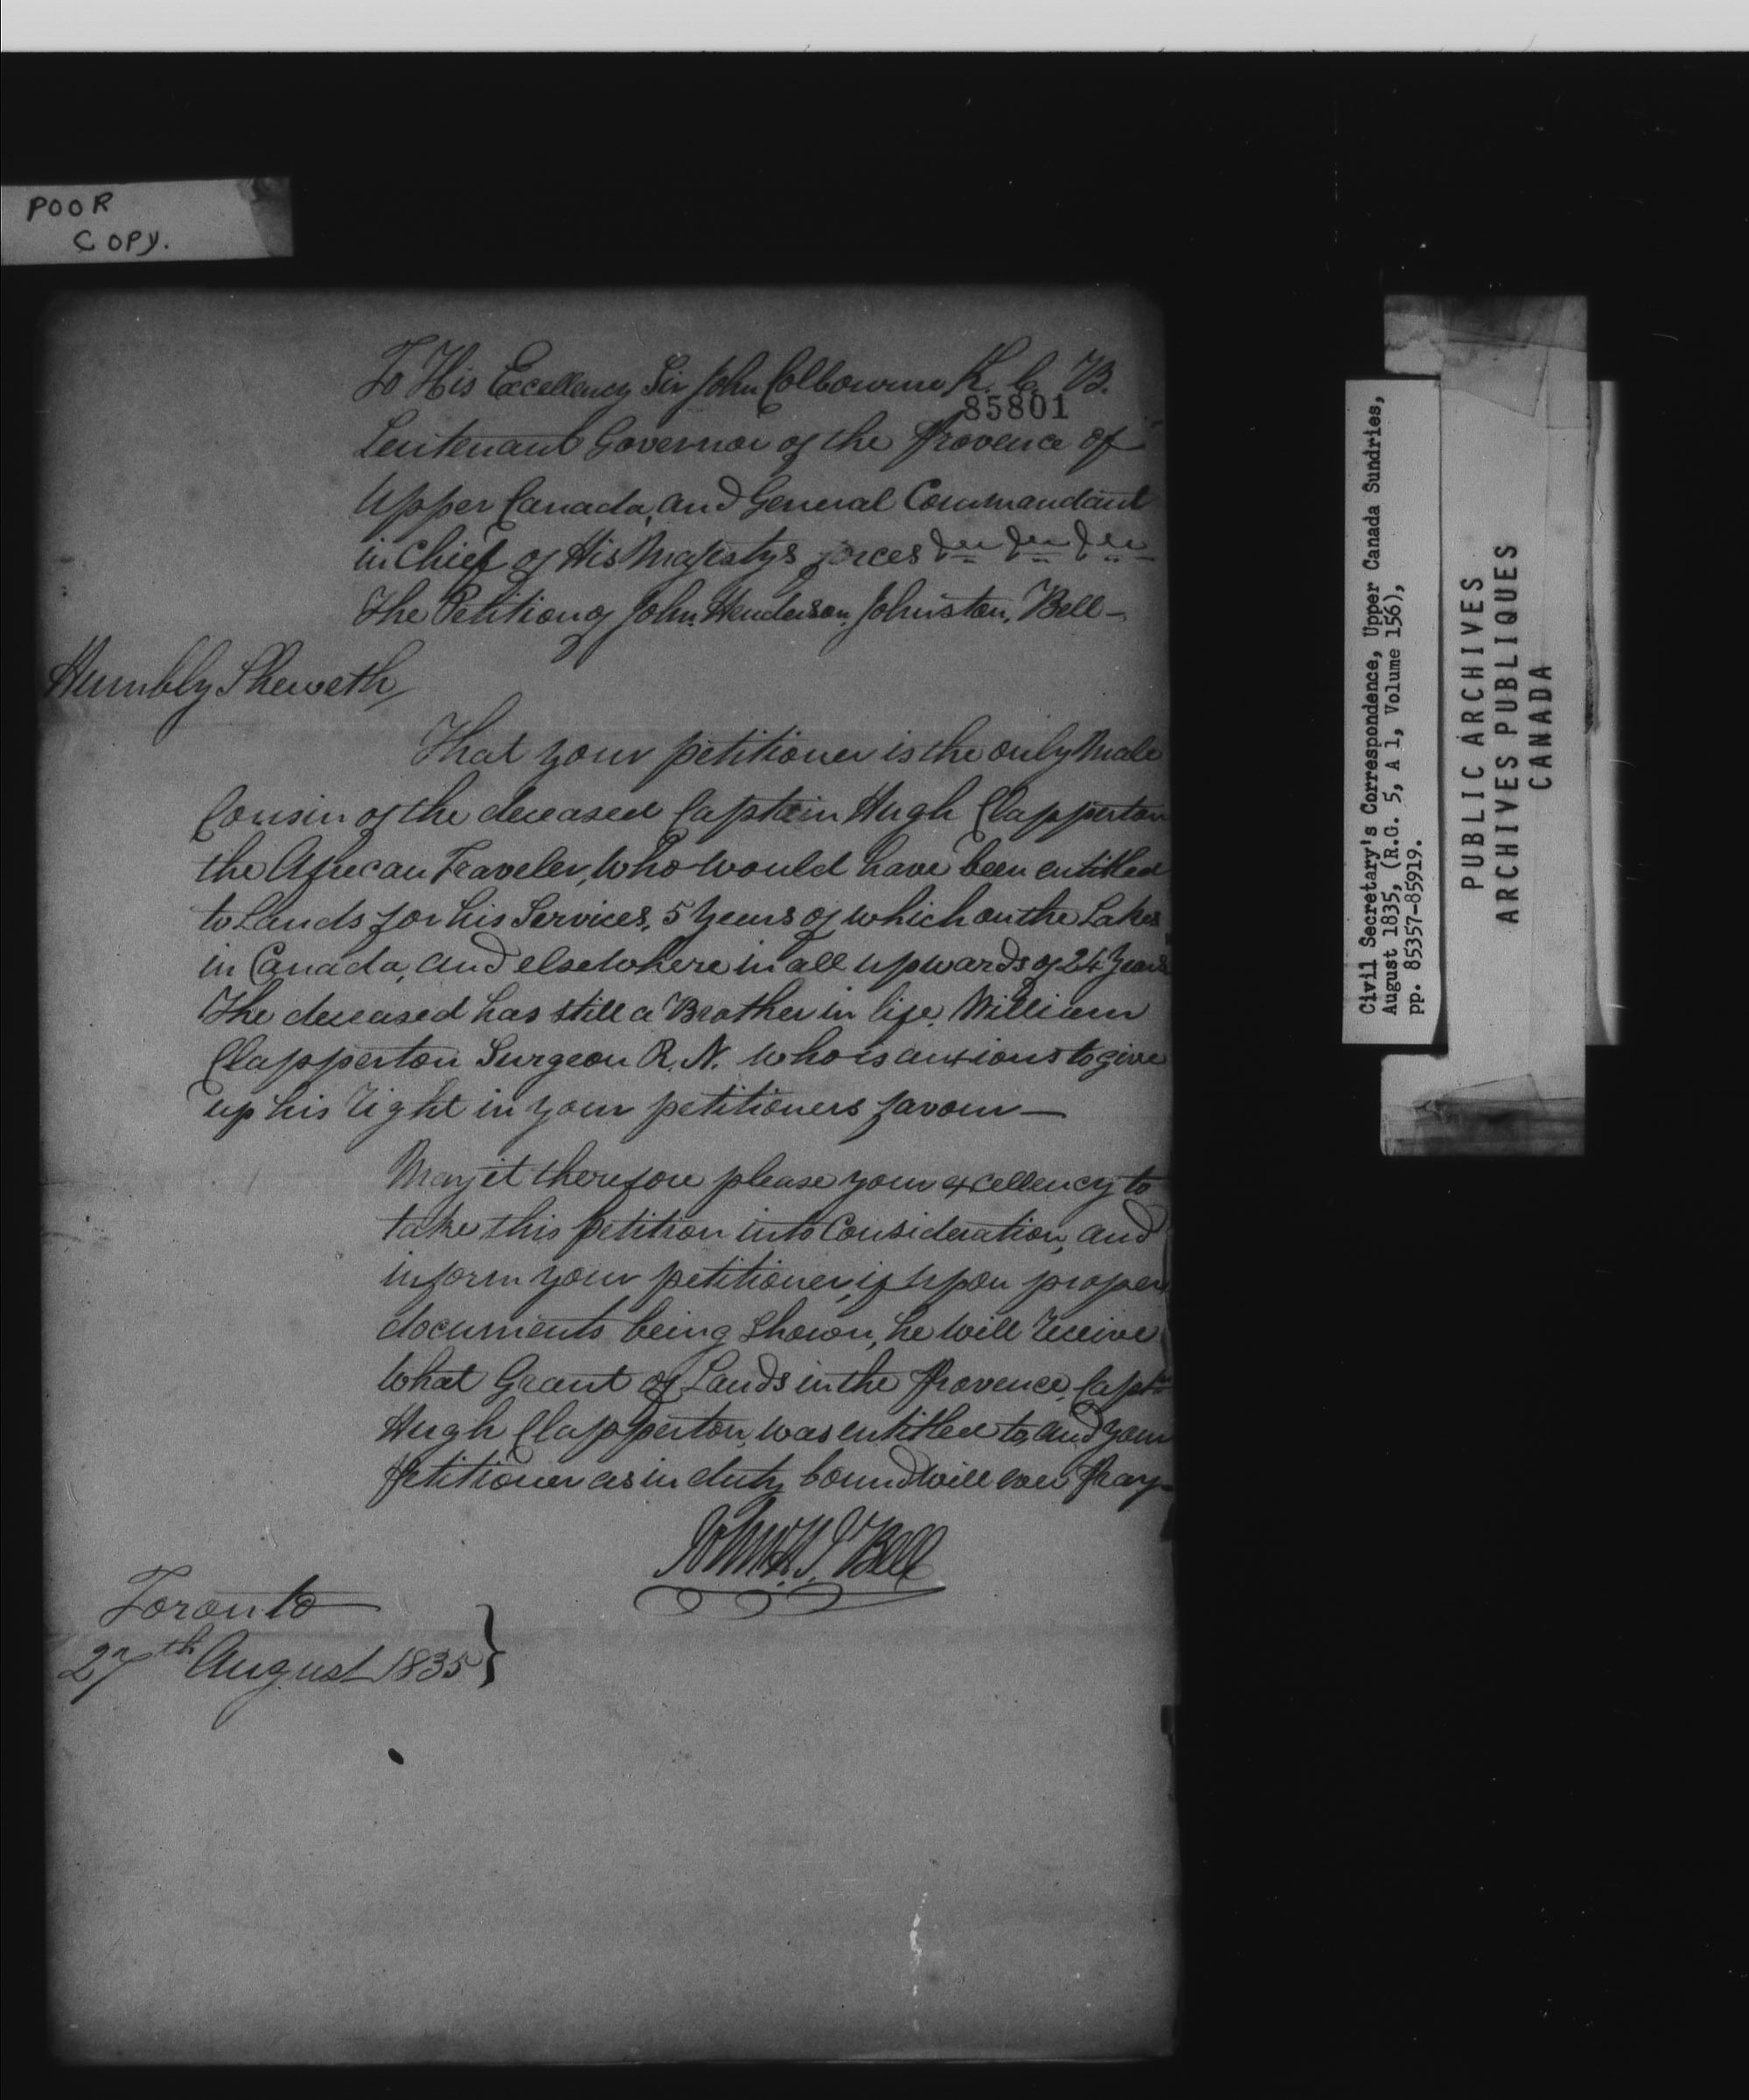 POOR
COPY.
To His Excellency Sir John Colbourne K. C. B.
85801
Leutenant Governor of the Provence of
Upper Canada, and General Commandant
in Chief of His Majestys forces &c &c &c
The Petition of John Henderson Johnston, Bell —
Humbly Sheweth,
That your petitioner is the only Male
Cousin of the deceased Captain Hugh Clapperton
the African Traveler, who would have been entitled
to Lands for his Services, 5 Years of which on the Lakes
in Canada, and elsewhere in all upwards of 24 Years
The deceased has still a Brother in life, William
Clapperton Surgeon R. N. who is anxious to give
up his right in your petitioners favour —
May it therefore please your excellency to
take this petition into Consideration, and
inform your petitioner, if upon proper
documents being shown, he will receive
what Grant of Lands in the Provence, Captn
Hugh Clapperton, was entitled to, and your
Petitioner as in duty bound will ever Pray —
John H. J. Bell
Toronto
27th August 1835 }
Civil Secretary's Correspondence, Upper Canada Sundries,
August 1835, (R.G. 5, A 1, Volume 156),
pp. 85357-85919.
PUBLIC ARCHIVES
ARCHIVES PUBLIQUES
CANADA